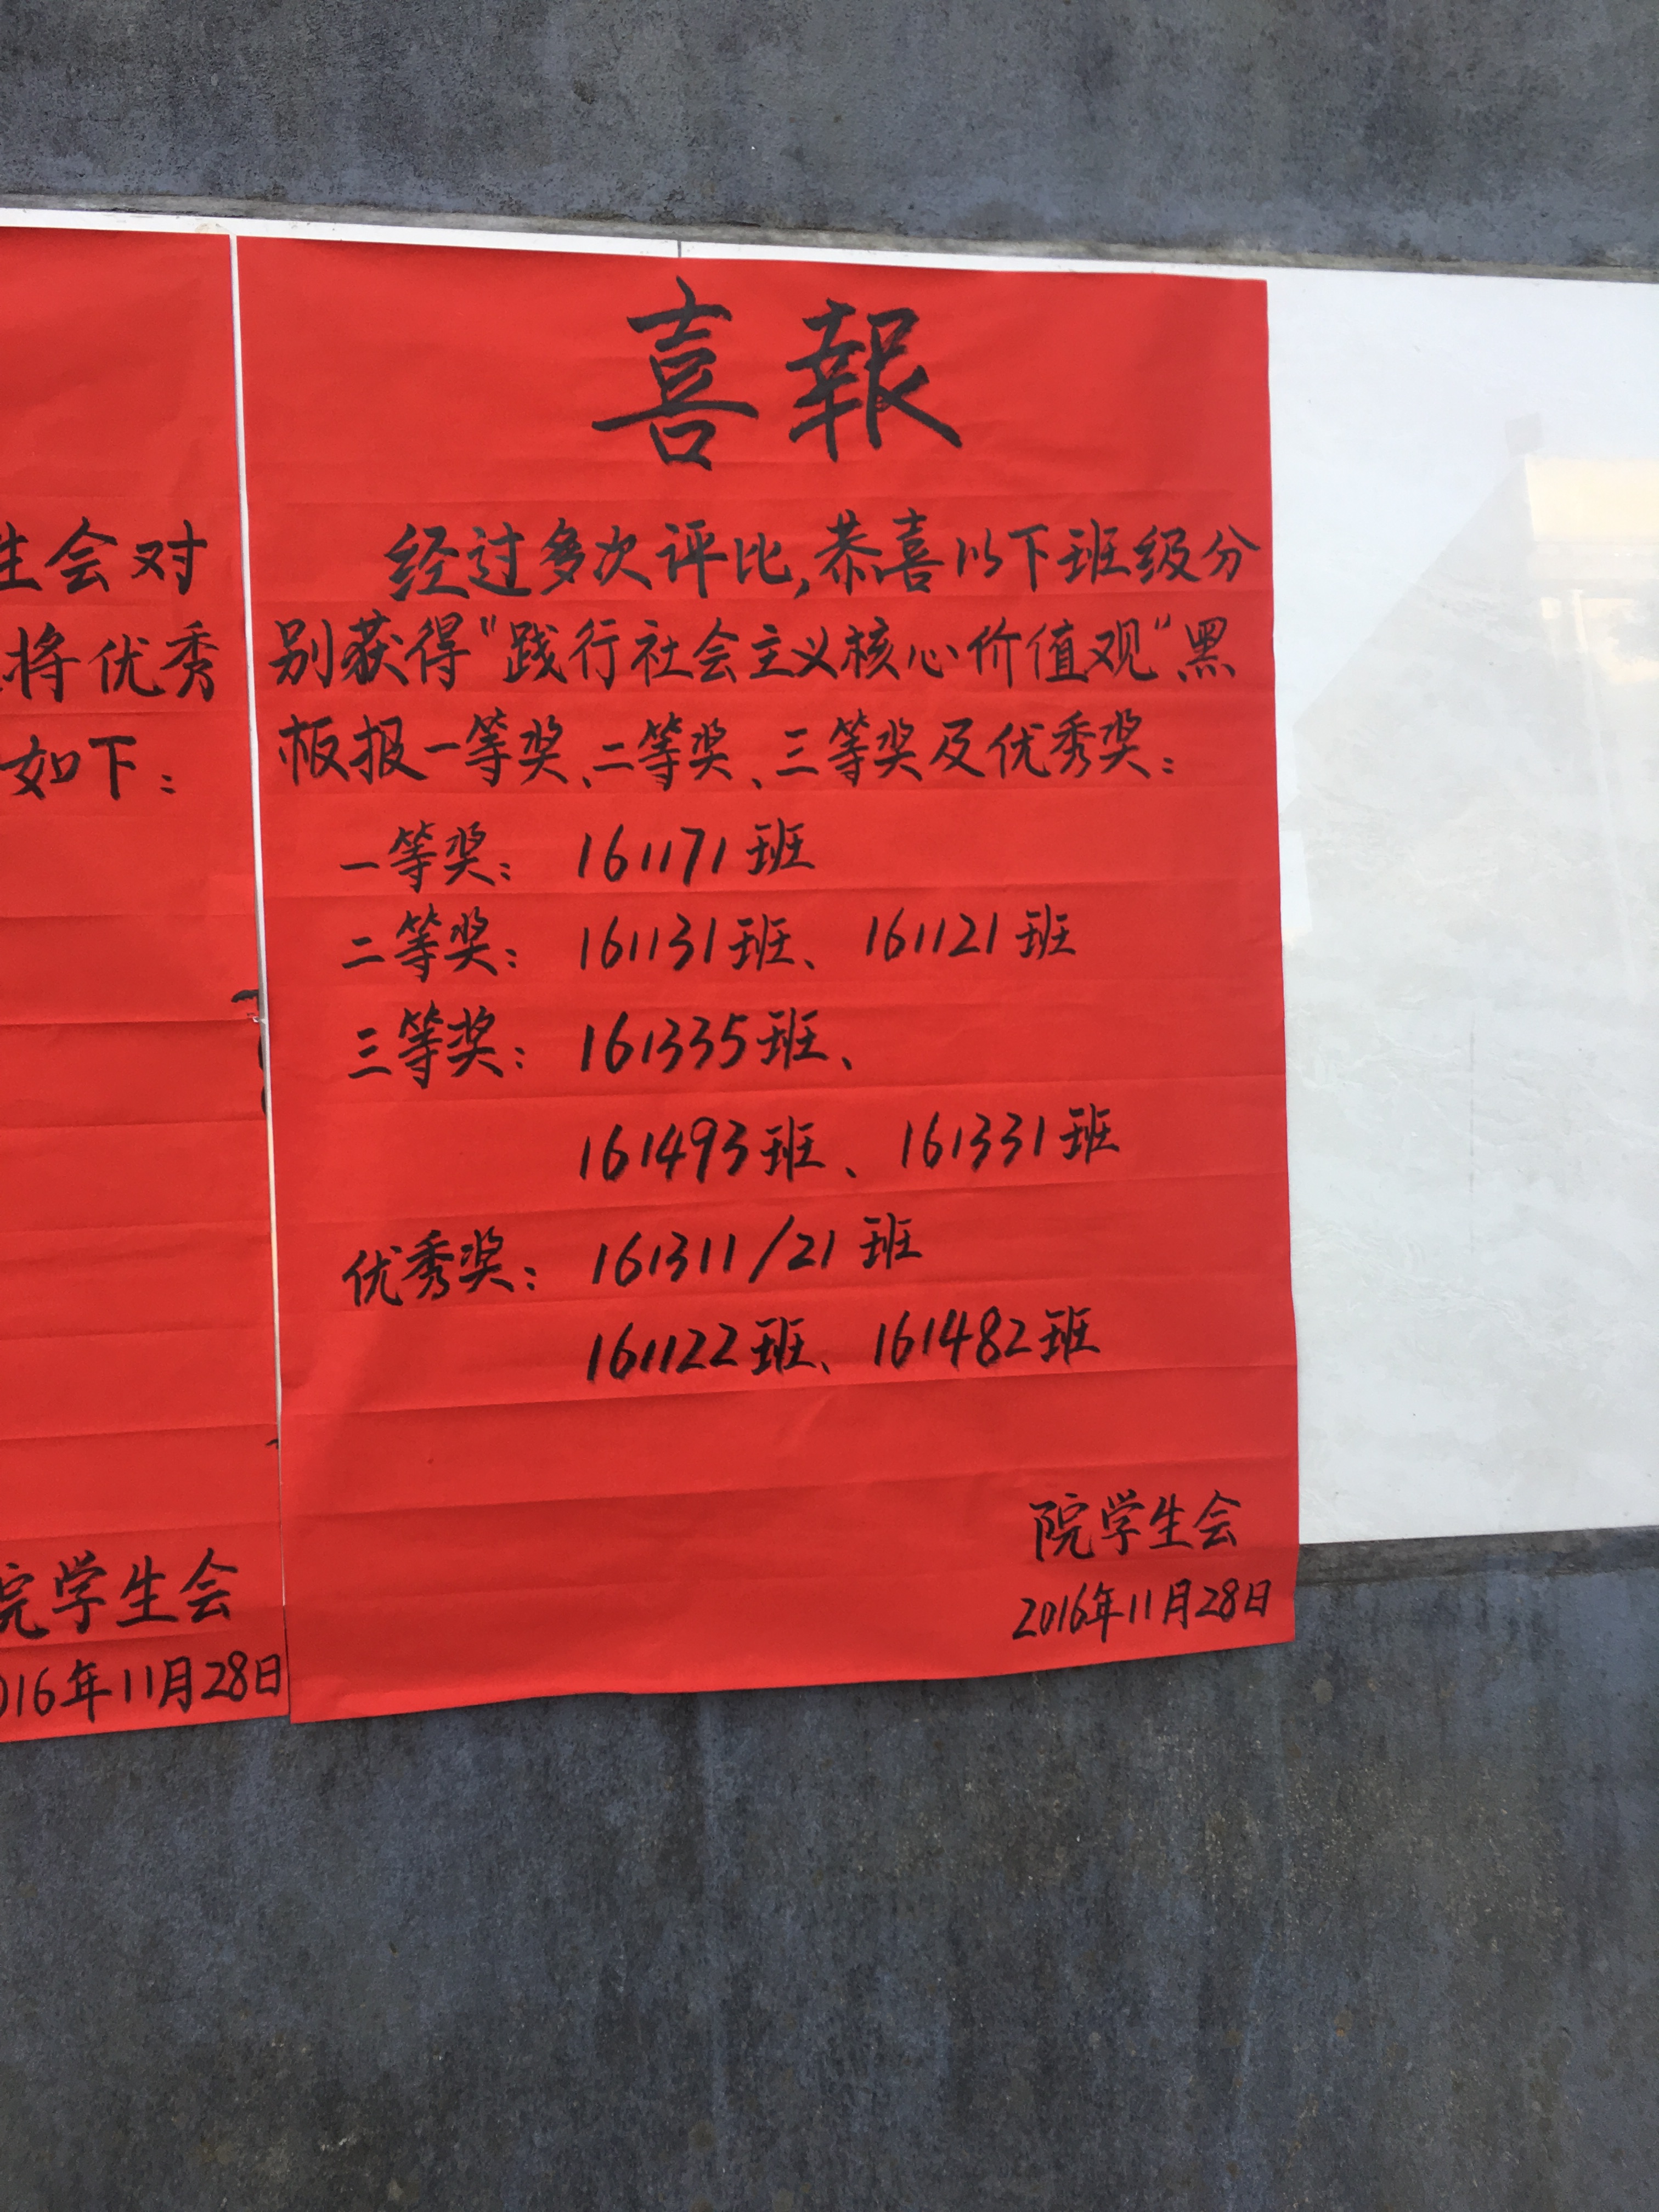 生会对
将优秀
如下：
院学生会
016年11月28日
喜報
经过多次评比,恭喜以下班级分
别获得"践行社会主义核心价值观"黑
板报一等奖、二等奖、三等奖及优秀奖：
一等奖： 161171班
二等奖： 161131班、 161121班
三等奖： 161335班、
161493班、 161331班
优秀奖： 161311/21班
161122班、 161482班
院学生会
2016年11月28日